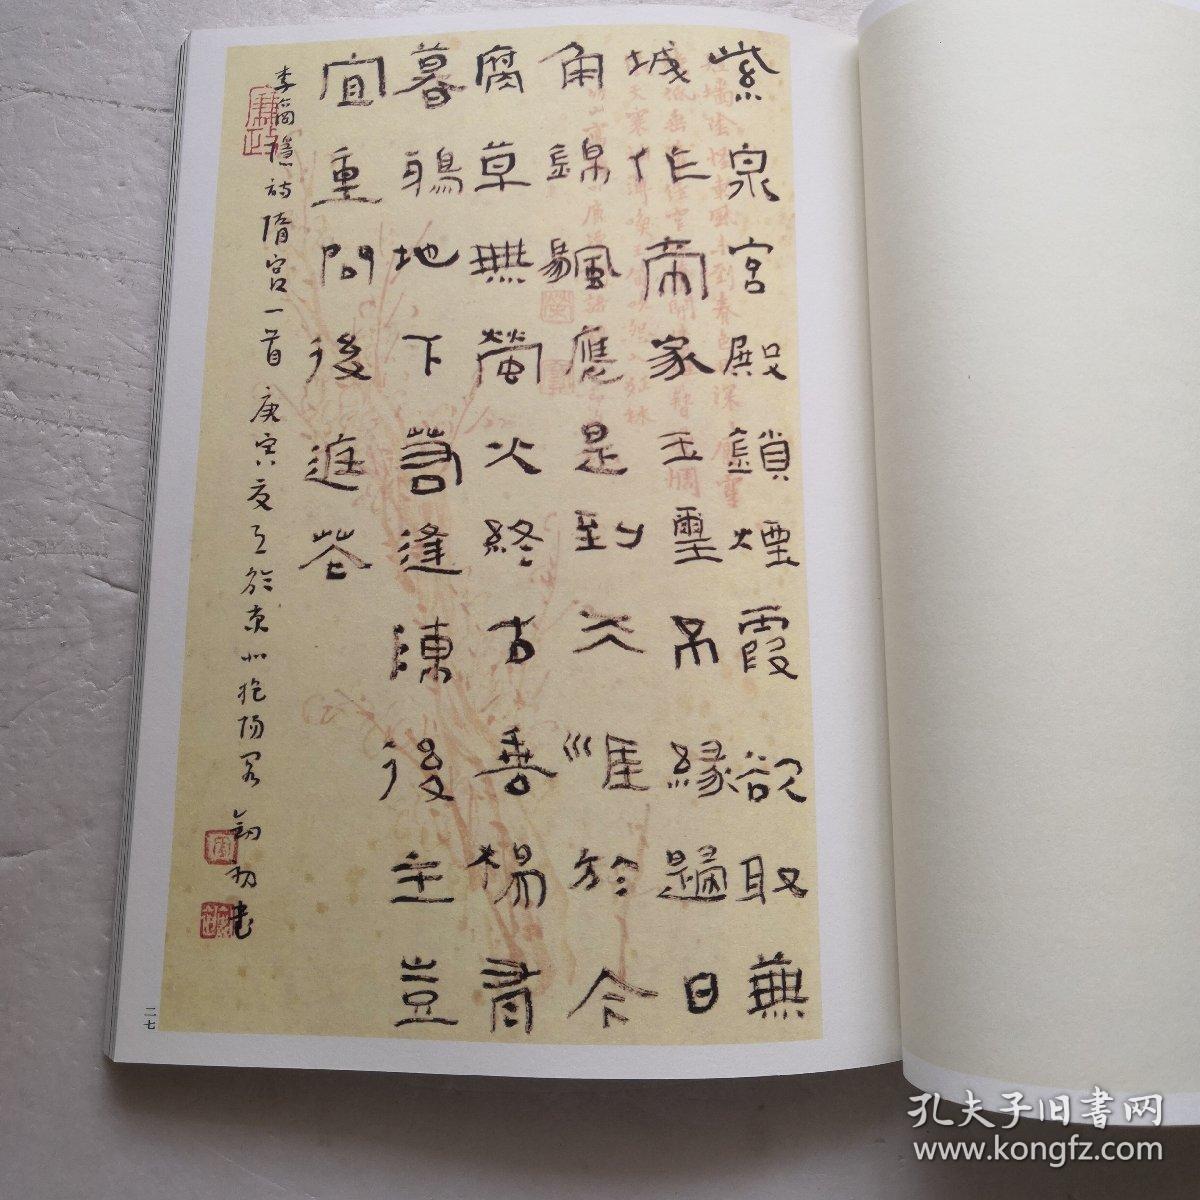 紫泉宮殿鎖煙霞欲取蕪
城作帝家玉璽不緣歸日
角錦颿應是到天涯於今
腐草無螢火終古垂楊有
暮鴉地下若逢陳後主豈
宜重問後庭花
李商隱詩隋宮一首 庚寅夏 於京北抱陽 書
二七
孔夫子旧書网
www.kongfz.com